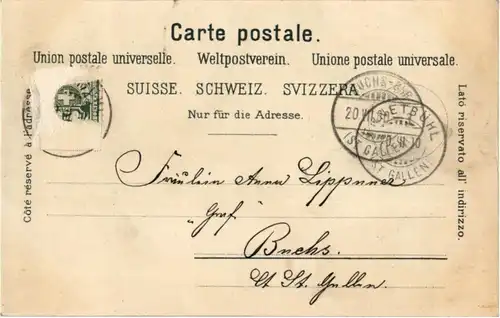 Carte postale.
Union postale universelle. Weltpostverein. Unione postale universale.
SUISSE. SCHWEIZ. SVIZZERA.
Nur für die Adresse.
Côté réservé à l'adresse.
Lato riservato all' indirizzo.
20 VII
ST GALLEN
Fräulein Anna Lippuner
"Graf"
Buchs.
Ct St. Gallen